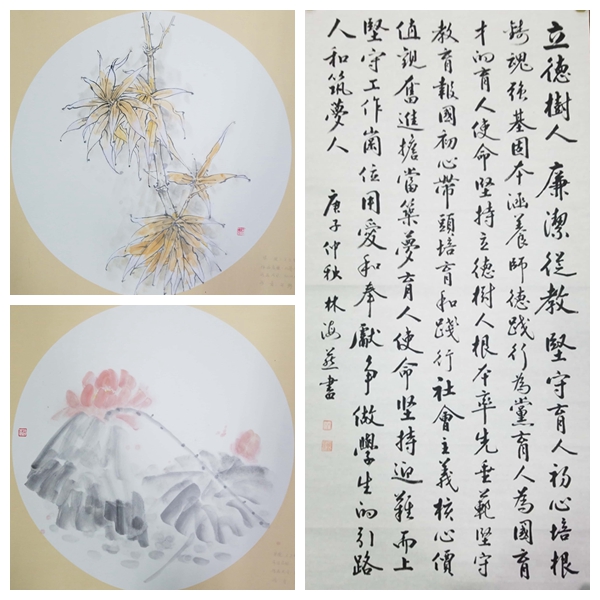 立德樹人 廉潔從教 堅守育人初心培根
鑄魂强基固本涵養師德踐行為黨育人為國育
才的育人使命坚持立德樹人根本率先垂範堅守
教育報國初心帶頭培育和踐行社會主義核心價
值觀奮進擔當築夢育人使命坚持迎難而上
堅守工作崗位用愛和奉獻爭做學生的引路
人和筑夢人 庚子仲秋林海燕書